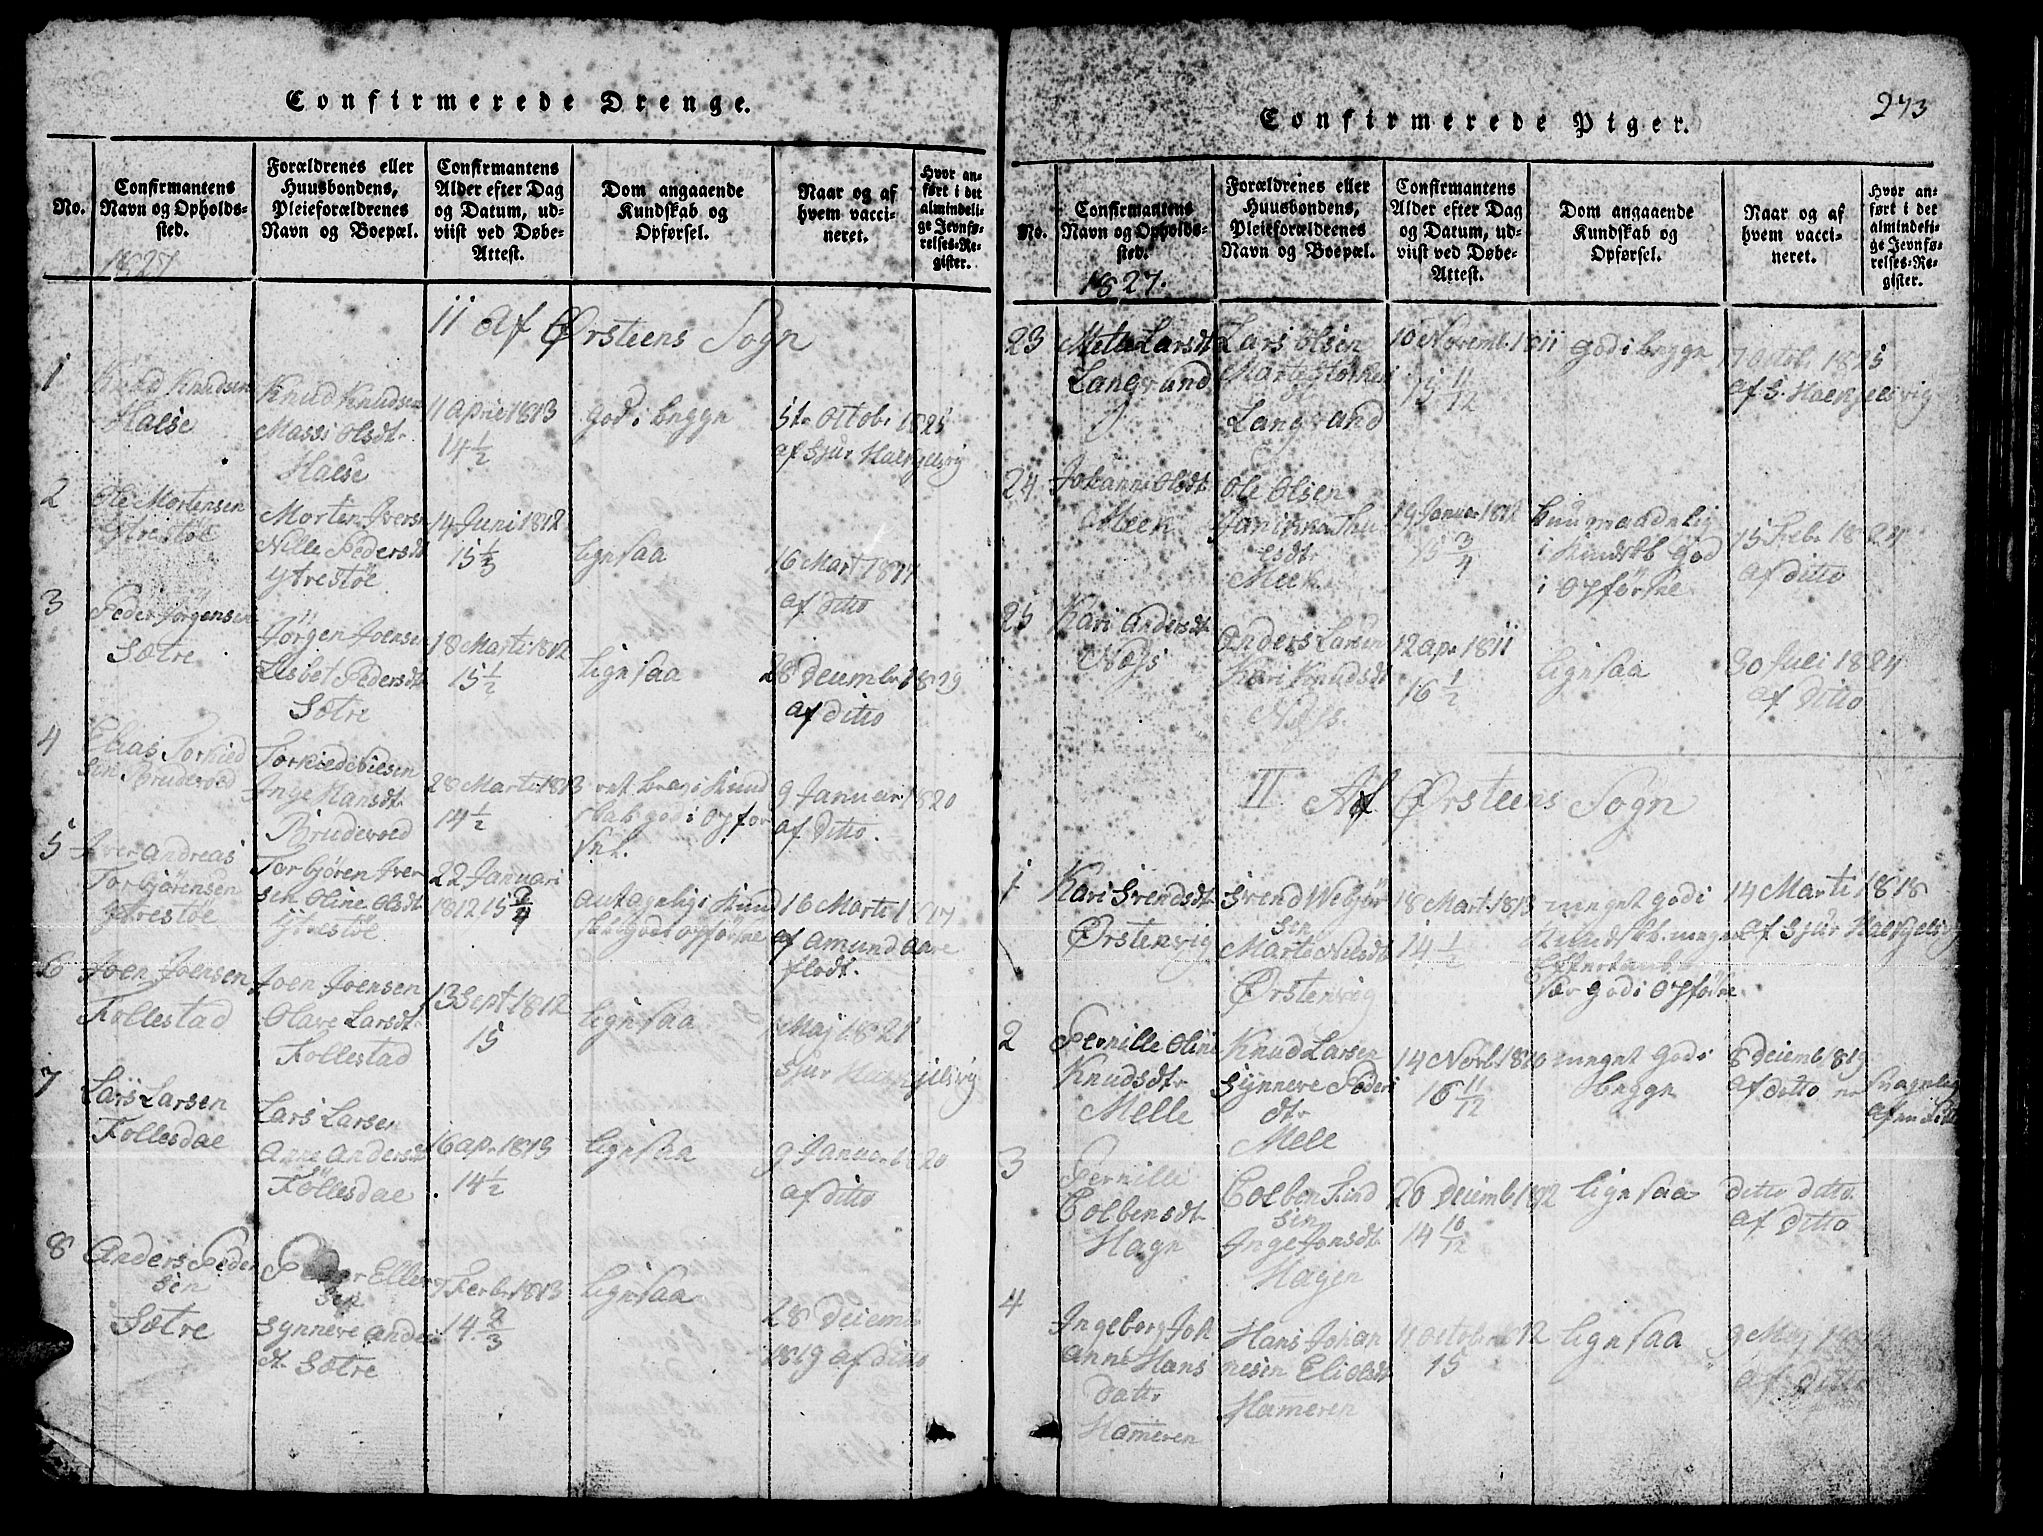 Confirmerede Drenge.
No.
Confirmantens
Navn og Opholds-
sted.
Forældrenes eller
Huusbondens,
Pleieforældrenes
Navn og Boepæl.
Confirmantens
Alder efter Dag
og Datum, ud-
viist ved Døbe-
Attest.
Dom angaaende
Kundskab og
Opførsel.
Naar og af
hvem vacci-
neret.
Hvor an-
ført i det
almindeli-
ge Jevnfø-
relses-Re-
gister.
1827
II Af Ørsteens Sogn
1
Knud Knudsen
Halse
Knud Knudsen
Massi Olsdtr
Halse
11 April 1813
14 1/2
god i begge
5te Octobr 1825
af Sjur Haengelsvig
2
Ole Mortensen
Ytrestöe
Morten Iversn
Nille Pedersdt
Ytrestöe
14 Juni 1812
15 1/3
ligesaa
16 Mart
af ditto
3
Peder Jörgensen
Sætre
Jörgen Joensen
Lisbet Pedersdt
Sætre
18 Marti 1812
15 1/2
ligesaa
28 Decembr 1829
af ditto
4
Elias Torkild
sen Brudevold
Inge Hansdt
Brudevold
28 Marti 1813
14 1/2
ret bra i Kund
skab god i opfør
sel.
9 Januar 1820
af ditto.
5
Iver Andreas
Torbjörensen
Ytrestöe
Torbjören Iver
sen Oline Olsdt
Ytrestöe
22 Januari
1812 15 3/4
antagelig i Kund
skb god i opförsle
16 Marti
af Amund Aare
flodt.
6
Joen Joensen
Follestad
Joen Joensen
Olave Larsdt
Follestad
13 Sept. 1812
15
ligesaa
1 Maj 1821
Sjur
7
Lars Larsen
Follesdae
Lars Larsen
Anne Andersdt
Föllesdae
16 apr 1813
14 1/2
ligesaa
9 Januar 1820
af ditto
8
Anders Peder
sen
Sætre
Peder Eller
sen
Synnere Anders
dt Sætre
7 Febr 1813
14 2/3
ligesaa
28 Decemb
1819 af ditto
Confirmerede Piger.
273
No.
Confirmantens
Navn og Opholds-
sted.
Forældrenes eller
Huusbondens,
Pleieforældrenes
Navn og Boepæl.
Confirmantens
Alder efter Dag
og Datum, ud-
viist ved Døbe-
Attest.
Dom angaaende
Kundskab og
Opførsel.
Naar og af
hvem vacci-
neret.
Hvor an-
ført i det
almindeli-
ge Jevnfø-
relses-Re-
gister.
1827.
23
Mete Larsdt
Langsund
Lars Olsen
Langsund
10 Novemb. 1811
15 11/12
god i begge
7 octob. 1825
af S. Haengelsvig
24
Johanne Olsdt
Meek
Ole Olsen
Janikka Thu
esdtr
Meek
19 Januar 1812
15 3/4
i Kundskb God
i opførsle
15 Febr 1824
af ditto
25
Kari Andersdt
Næss
Anders Larsen
Kari Knudsdt
Næss.
12 apr 1811
16 1/2
ligesaa
30 Juli 1824
af Ditto
II Af Ørsteens Sogn
1
Kari Svendsdt
Ørstenvig
Svend Webjör
sen
Marte Nilsdt
Ørstenvig
18 Mart. 1813
14 1/2
meget god i
Kundskb. meget
god i opförsle
14 Marti 1818
af Sjur Haengelsvig
2
Pernille Oline
Knudsdtr
Melle
Knud Larsen
Synnere Peders
dtr
Mele
14 Novbr. 1810
16 11/12
meget god i
begge
8 Decemb 1819
af ditto
3
Pernille
Colbensdt
Hagn
Colben Find
sen
Inge Jonsdt
Hagen
20 Decemb 1812
14 10/12
ligesaa
ditto ditto
af ditto
4
Ingeborg Joh
anne Hans
datr
Hameren
Hans Johan
nesen Eli Olsdt
Hameren
11 octobr 1812
15
ligesaa
9 Maj
af ditto